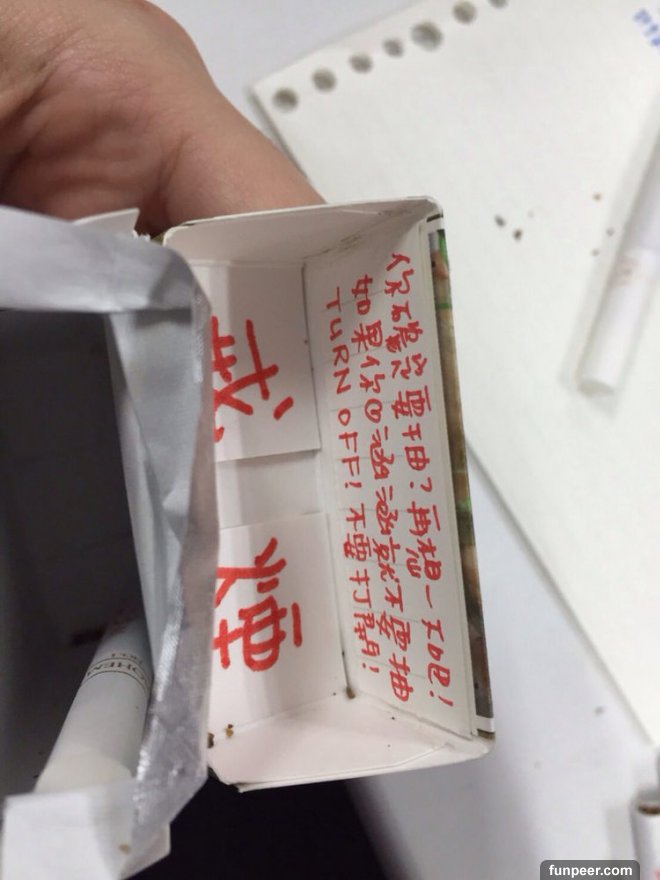 你確定要抽?再想一下吧!
如果你涵涵就不要抽
TURN OFF! 不要打開!
戒
煙
OHEM
funpeer.com